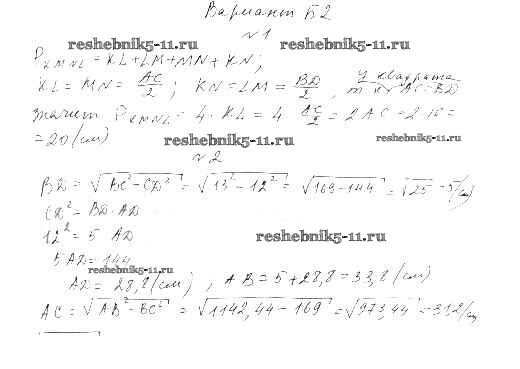 Вариант Б2
№1
reshebnik5-11.ru reshebnik5-11.ru
P KMNL = KL + LM + MN + KN;
KL = MN = AC/2; KN = LM = BD/2, у квадрата AC = BD
значит P KMNL = 4 · KL = 4 AC/2 = 2 AC = 2 · 10 =
= 20 (см) reshebnik5-11.ru reshebnik5-11.ru
№2
BD = √BC² - CD² = √13² - 12² = √169 - 144 = √25 = 5 (см)
CD² = BD · AD
12² = 5 AD reshebnik5-11.ru
5 AD = 144
reshebnik5-11.ru
AD = 28,8 (см), AB = 5 + 28,8 = 33,8 (см)
AC = √AB² - BC² = √1142,44 - 169 = √973,44 = 31,2 (см)